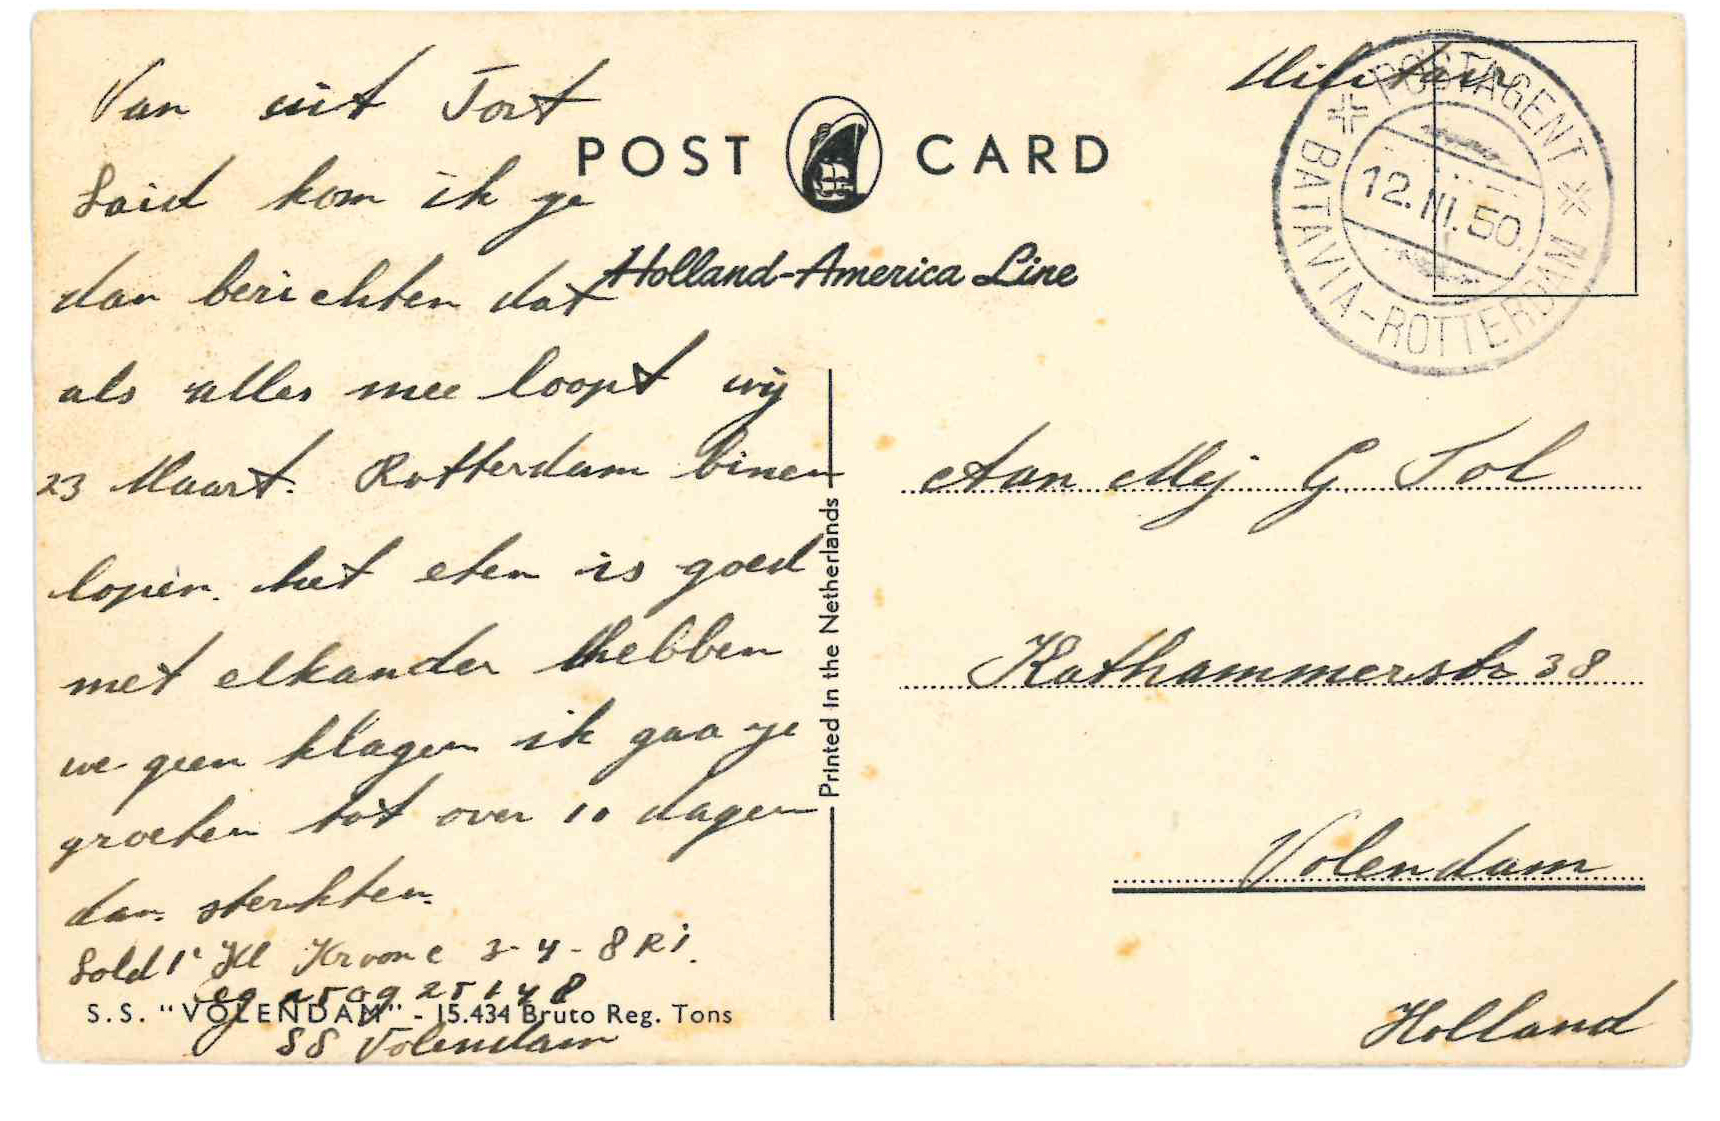 Van uit Port
Said kom ik ye
dan berichten dat
als alles mee loopt wij
23 Maart. Rotterdam binen
lopen. het eten is goed
met elkander hebben
we geen klagen ik gaa ye
groeten tot over 10 dagen
dan. sterkten.
Sold 1e Kl Kroone 3-4-8 RI.
SS Volendam
S.S. "VOLENDAM" - 15.434 Bruto Reg. Tons
POST CARD
Holland-America Line
Printed in the Netherlands
Militair
POSTAGENT
12.III.50.
BATAVIA-ROTTERDAM
Aan Mej G Tol
Kathammerstr 38
Volendam
Holland